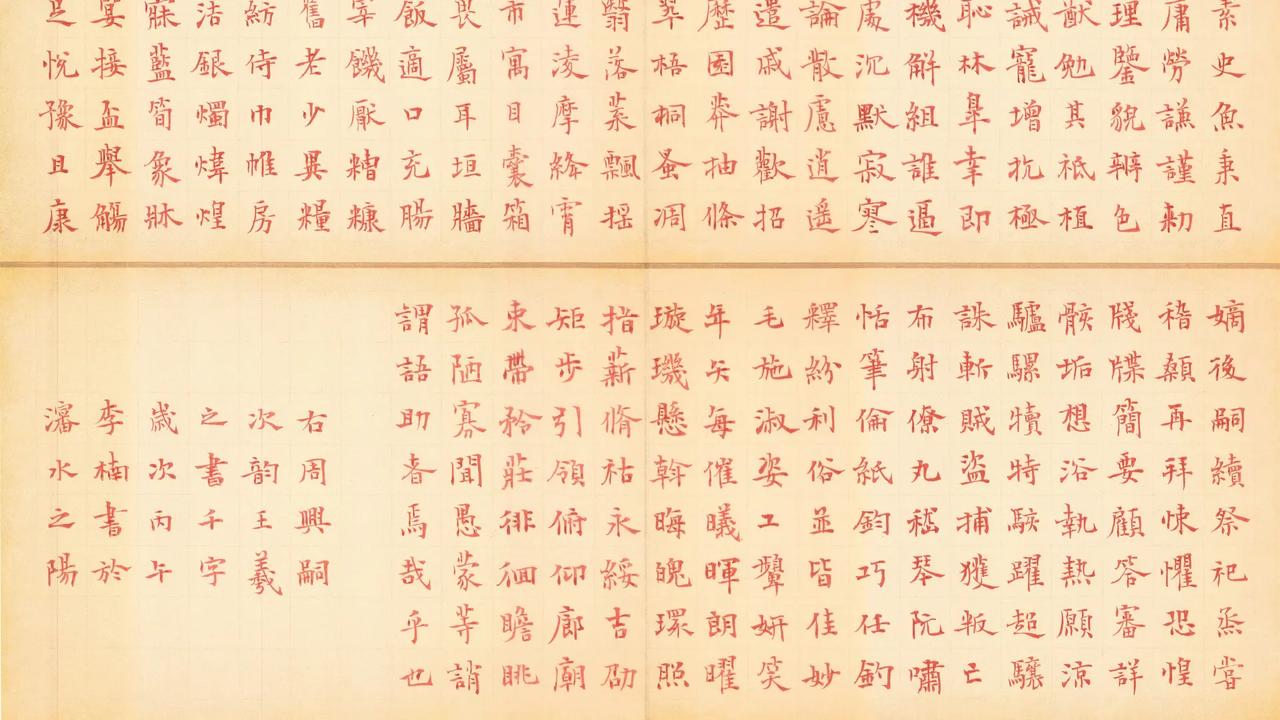 素史魚秉直
庸勞謙謹勅
理鑒貌辨色
猷勉其祗植
誡寵增抗極
恥林皋幸即
機解組誰逼
處沉默寂寥
論散慮逍遥
遣戚謝歡招
歷園莽抽條
翠梧桐蚤凋
翳落葉飄揺
運淩摩絳霄
市寓目囊箱
畏屬耳垣牆
飯適口充腸
宰饑厭糟糠
舊老少異糧
紡侍巾帷房
洁銀燭煒煌
寐藍筍象牀
宴接盃舉觴
足悅豫且康
嫡後嗣續祭祀烝嘗
稽顙再拜悚懼恐惶
牋牒簡要顧答審詳
骸垢想浴執熱願涼
驢騾犢特駭躍超驤
誅斬賊盜捕獲叛亡
布射僚丸嵇琴阮嘯
恬筆倫紙鈞巧任釣
釋紛利俗並皆佳妙
毛施淑姿工顰妍笑
年矢每催曦暉朗曜
璇璣懸斡晦魄環照
指薪脩祜永綏吉劭
矩步引領俯仰廊廟
束帶矜莊徘徊瞻眺
孤陋寡聞愚蒙等誚
謂語助者焉哉乎也
右周興嗣
次韵王羲
之書千字
歲次丙午
李楠書於
瀋水之陽